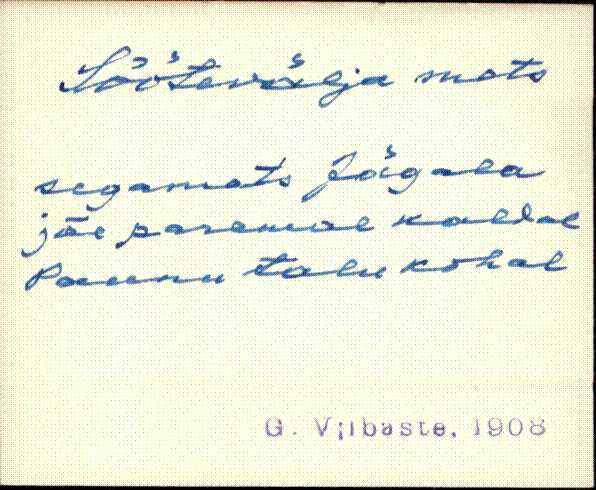 Söötevälja mets
segamets Jägala
jõe paremal kaldal
Paunu talu kohal
G. Vilbaste, 1908